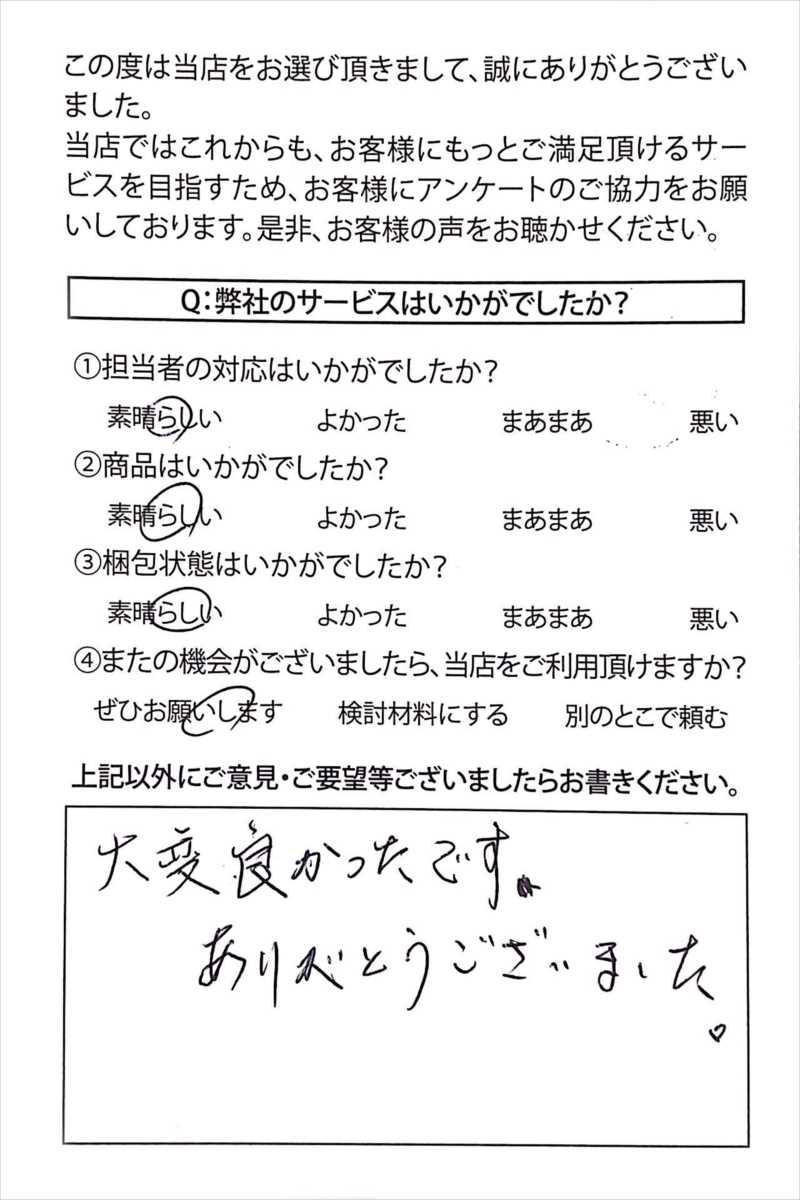 この度は当店をお選び頂きまして、誠にありがとうござい
ました。
当店ではこれからも、お客様にもっとご満足頂けるサー
ビスを目指すため、お客様にアンケートのご協力をお願
いしております。是非、お客様の声をお聴かせください。
Q:弊社のサービスはいかがでしたか?
①担当者の対応はいかがでしたか?
素晴らしい よかった まあまあ 悪い
②商品はいかがでしたか?
素晴らしい よかった まあまあ 悪い
③梱包状態はいかがでしたか?
素晴らしい よかった まあまあ 悪い
④またの機会がございましたら、当店をご利用頂けますか?
ぜひお願いします 検討材料にする 別のとこで頼む
上記以外にご意見・ご要望等ございましたらお書きください。
大変良かったです。
ありがとうございました